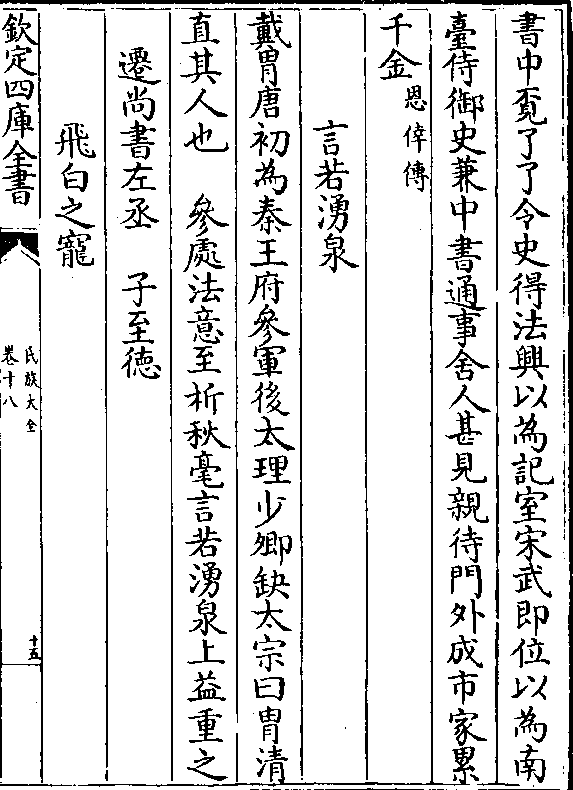 書中覓了了令史得法興以為記室宋武即位以為南
臺侍御史兼中書通事舍人甚見親待門外成市家累
千金恩倖傳
言若湧泉
戴胄唐初為秦王府參軍後太理少卿缺太宗曰胄清
直其人也 參處法意至析秋毫言若湧泉上益重之
遷尚書左丞 子至徳
飛白之寵
欽定四庫全書
氏族大全
卷十八
十五